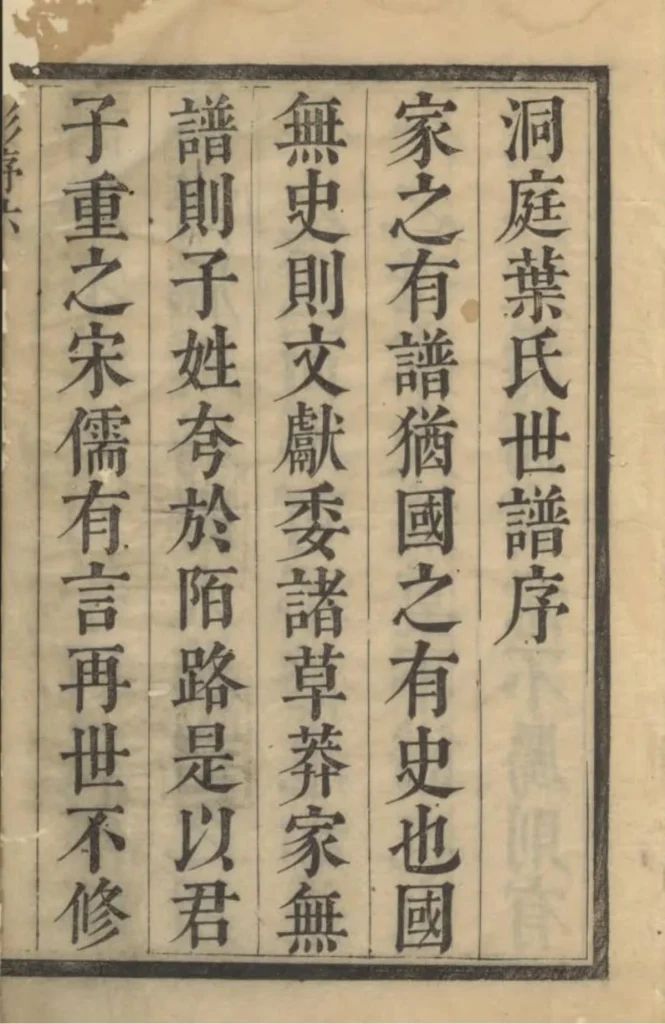 洞庭葉氏世譜序
家之有譜猶國之有史也國
無史則文獻委諸草莽家無
譜則子姓夸於陌路是以君
子重之宋儒有言再世不修
序六